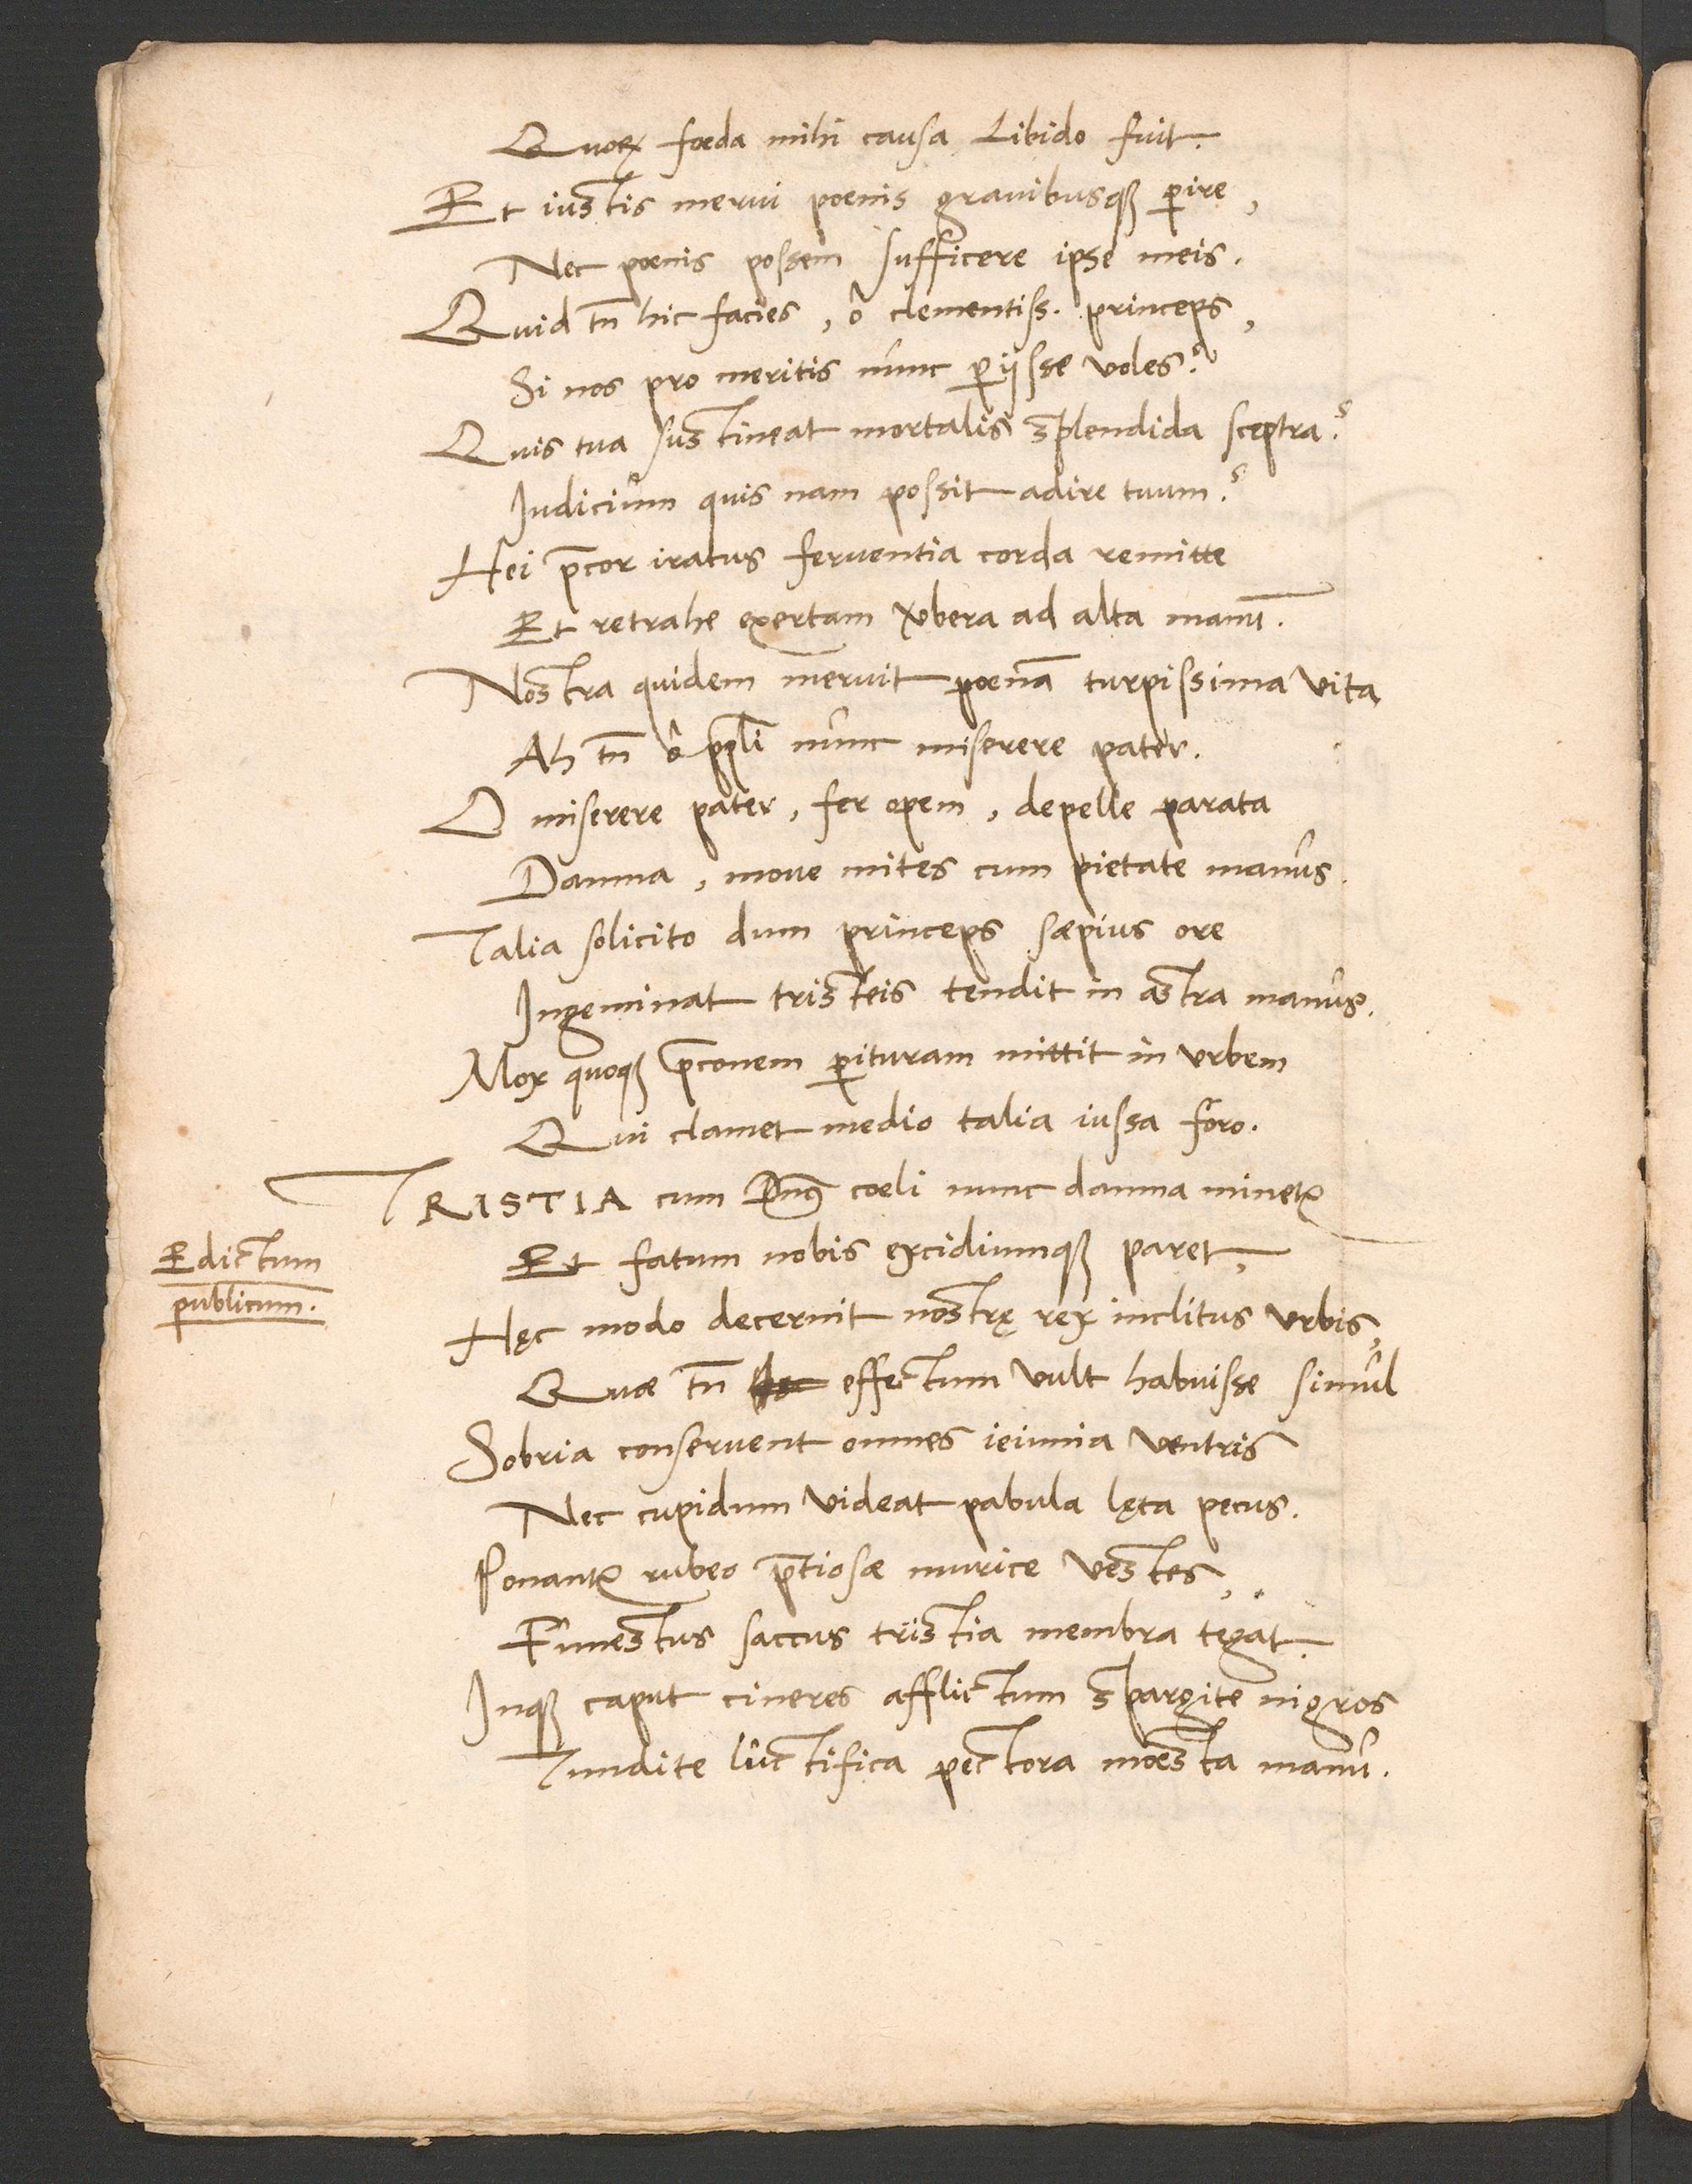 Quoꝝ foeda mihi causa Libido fuit.
Et iustis merui poenis grauibusqꝫ ꝑire,
Nec poenis possem sufficere ipse meis.
Quid tn̄ hic facies, ô clementiss. princeps,
Si nos pro meritis nunc ꝑijsse uoles?
Quis tua sustineat mortalis splendida sceptra?
Iudicium quis nam possit adire tuum?
Hei p̄cor iratus feruentia corda remitte
Et retrahe exertam vbera ad alta manū.
Nostra quidem meruit poenā turpissima vita
Ah tn̄ ô ppli nunc miserere pater.
O miserere pater, fer opem, depelle parata
Damna, moue mites cum pietate manus.
Talia solicito dum princeps sæpius ore
Ingeminat tristeis tendit in astra manus.
Mox quoqꝫ p̄conem ꝑituram mittit in vrbem
Qui clamet medio talia iussa foro.
TRISTIA cum Dn̄s coeli nunc damna minetur
Edictum
publicum.
Et fatum nobis excidiumqꝫ paret,
Hęc modo decernit nostrę rex inclitus vrbis,
Quæ tn̄ effectum vult habuisse simul
Sobria conseruent omnes ieiunia ventris
Nec cupidum videat pabula lęta pecus.
Ponantur rubeo p̄tiosæ murice vestes,
Funestus saccus tristia membra tegat.
Inqꝫ caput cineres afflictum spargite nigros
Tundite luctifica pectora moesta manu.